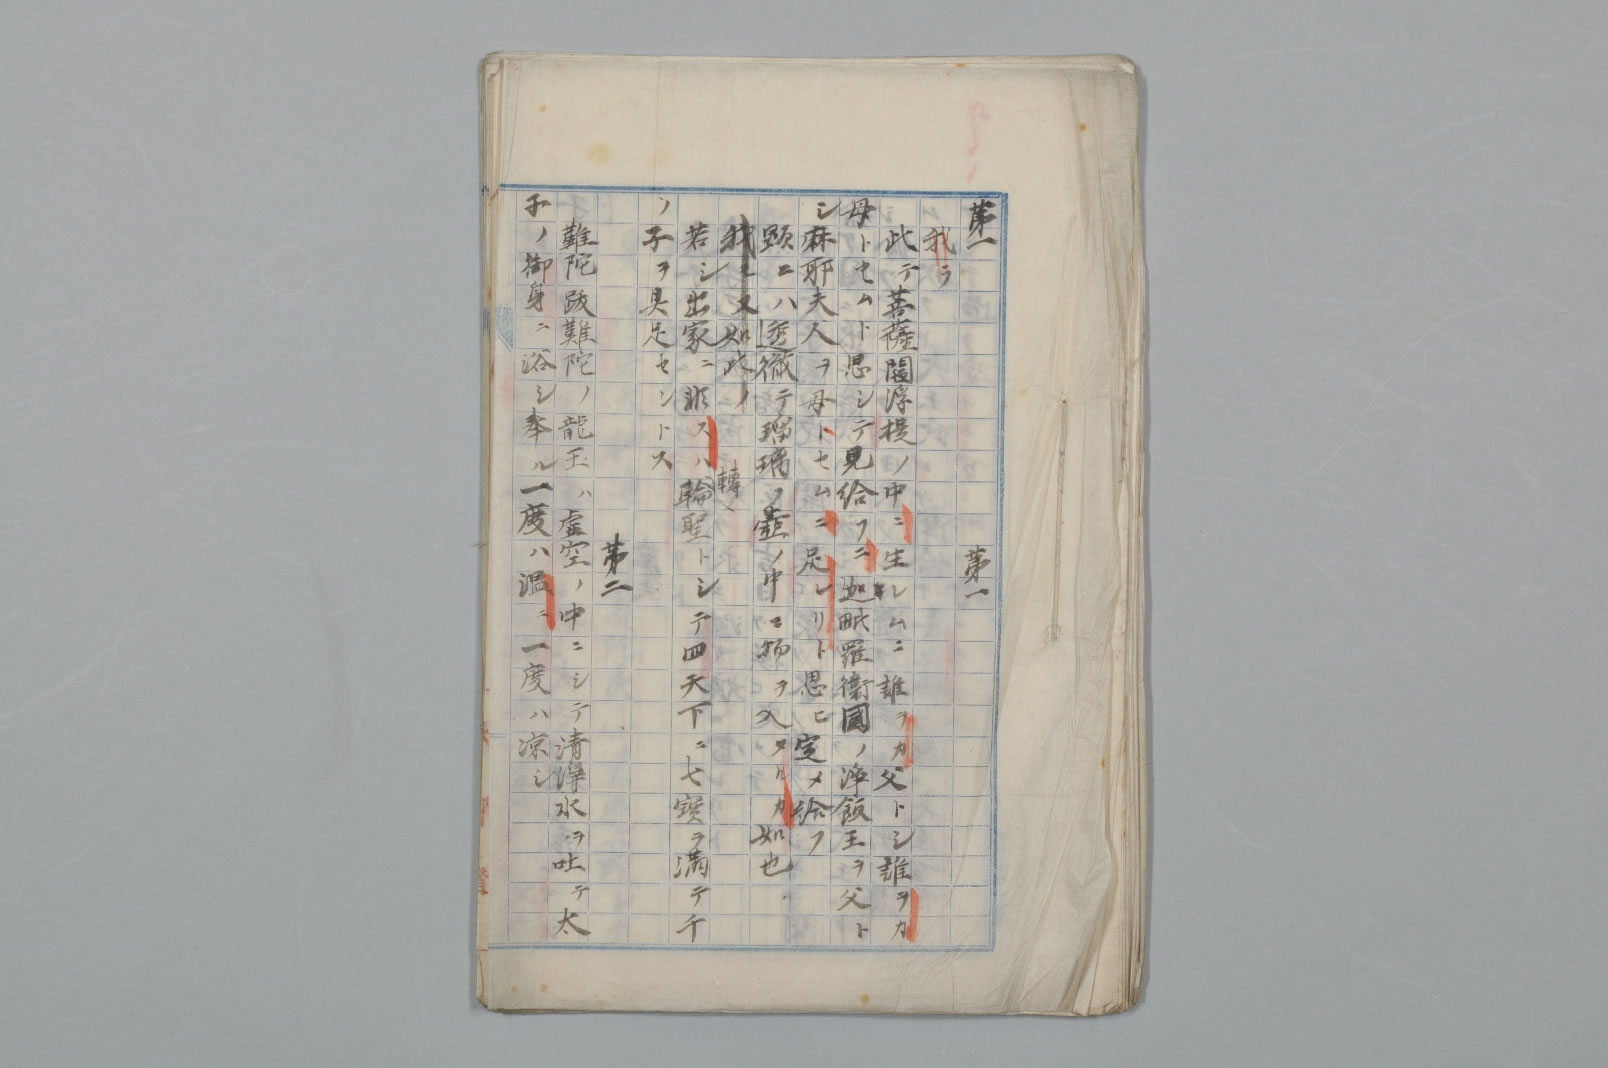 第一　第一
我ラ
此テ菩薩閻浮提ノ中ニ生レムニ誰ヲカ父トシ誰ヲカ
母トセムト思シテ見給フニ迦毗羅衛國ノ浄飯王ヲ父ト
シ麻耶夫人ヲ母トセムニ足レリト思ヒ定メ給フ
顕ニハ透徹テ瑠璃ノ壷ノ中ニ物ヲ入タルカ如也
我モ又如此ノ
轉
若シ出家ニ非スハ輪聖トシテ四天下ニ七寳ヲ満テ千
ノ子ヲ具足セントス
第二
難陀跋難陀ノ龍王ハ虚空ノ中ニシテ清浄水ヲ吐テ太
子ノ御身ニ浴シ奉ル一度ハ温ニ一度ハ凉シ